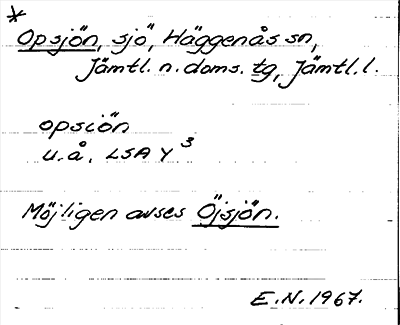 *
Opsjön, sjö, Häggenås sn,
Jämtl. n. doms. tg, Jämtl. l.
opsiön
u.å. LSA Y 3
Möjligen avses Öjsjön.
E.N. 1967.